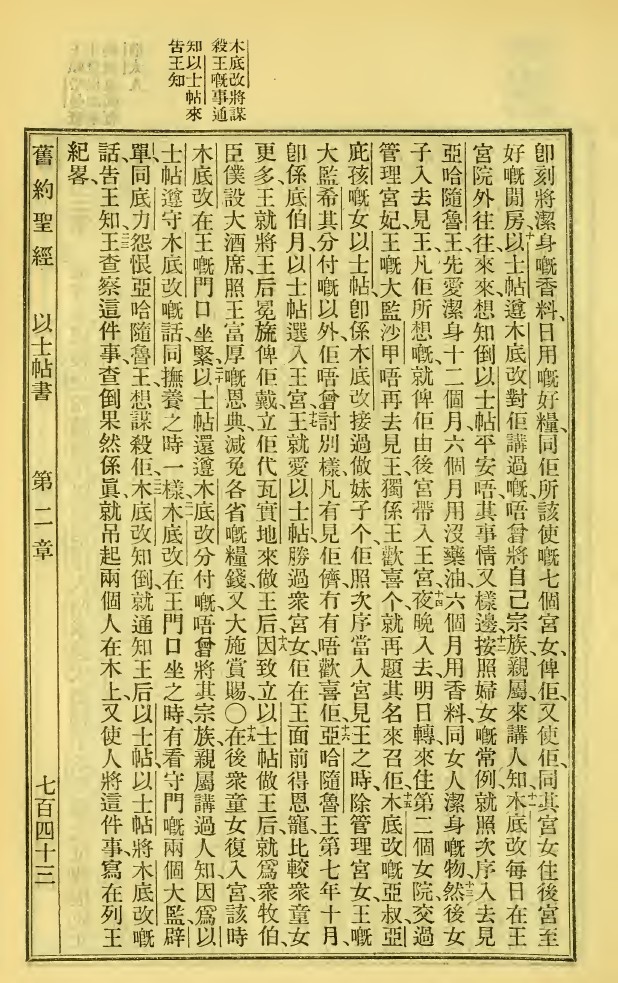 木底改將謀
殺王嘅事通
知以士帖來
告王知
卽刻將潔身嘅香料、日用嘅好糧、同佢所該使嘅七個宮女俾佢、又使佢同其宮女住後宮至
好嘅閒房、十以士帖遵木底改對佢講過嘅、唔曾將自己宗族親屬來講人知、十一木底改每日在王
宮院外往往來來、想知倒以士帖平安唔、其事情又樣邊、十二按照婦女嘅常例、就照次序入去見
亞哈隨魯王、先愛潔身十二個月、六個月用沒藥油、六個月用香料、同女人潔身嘅物、十三然後女
子入去見王、凡佢所想嘅、就俾佢由後宮帶入王宮、十四夜晚入去、明日轉來住第二個女院、交過
管理宮妃、王嘅大監沙甲、唔再去見王、獨係王歡喜个、就再題其名來召佢、十五木底改嘅亞叔亞
庇孩嘅女以士帖、卽係木底改接過做妹子个、佢照次序當入宮見王之時、除管理宮女、王嘅
大監希其分付嘅以外、佢唔曾討別樣、凡有見佢儕冇有唔歡喜佢、十六亞哈隨魯王第七年十月、
卽係底伯月、以士帖選入王宮、十七王就愛以士帖、勝過衆宮女、佢在王面前得恩寵、比較衆童女
更多、王就將王后冕旒俾佢戴、立佢代瓦實地來做王后、十八因致立以士帖做王后、就爲衆牧伯、
臣僕設大酒席、照王富厚嘅恩典、減免各省嘅糧錢、又大施賞賜、〇十九在後衆童女復入宮、該時
木底改在王嘅門口坐緊、二十以士帖還遵木底改分付嘅、唔曾將其宗族、親屬講過人知、因爲以
士帖遵守木底改嘅話、同撫養之時一樣、二一木底改在王門口坐之時、有看守門嘅兩個大監、辟
單、同底力、怨恨亞哈隨魯王、想謀殺佢、二二木底改知倒、就通知王后以士帖、以士帖將木底改嘅
話告王知、二三王查察這件事、查倒果然係眞、就吊起兩個人在木上、又使人將這件事、寫在列王
紀畧、
舊約聖經　以士帖書　第二章　七百四十三